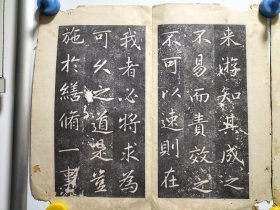 来游知其成之
不易而責效之
不可以速則在
我者必將求為
可久之道是豈
施於繕脩一事